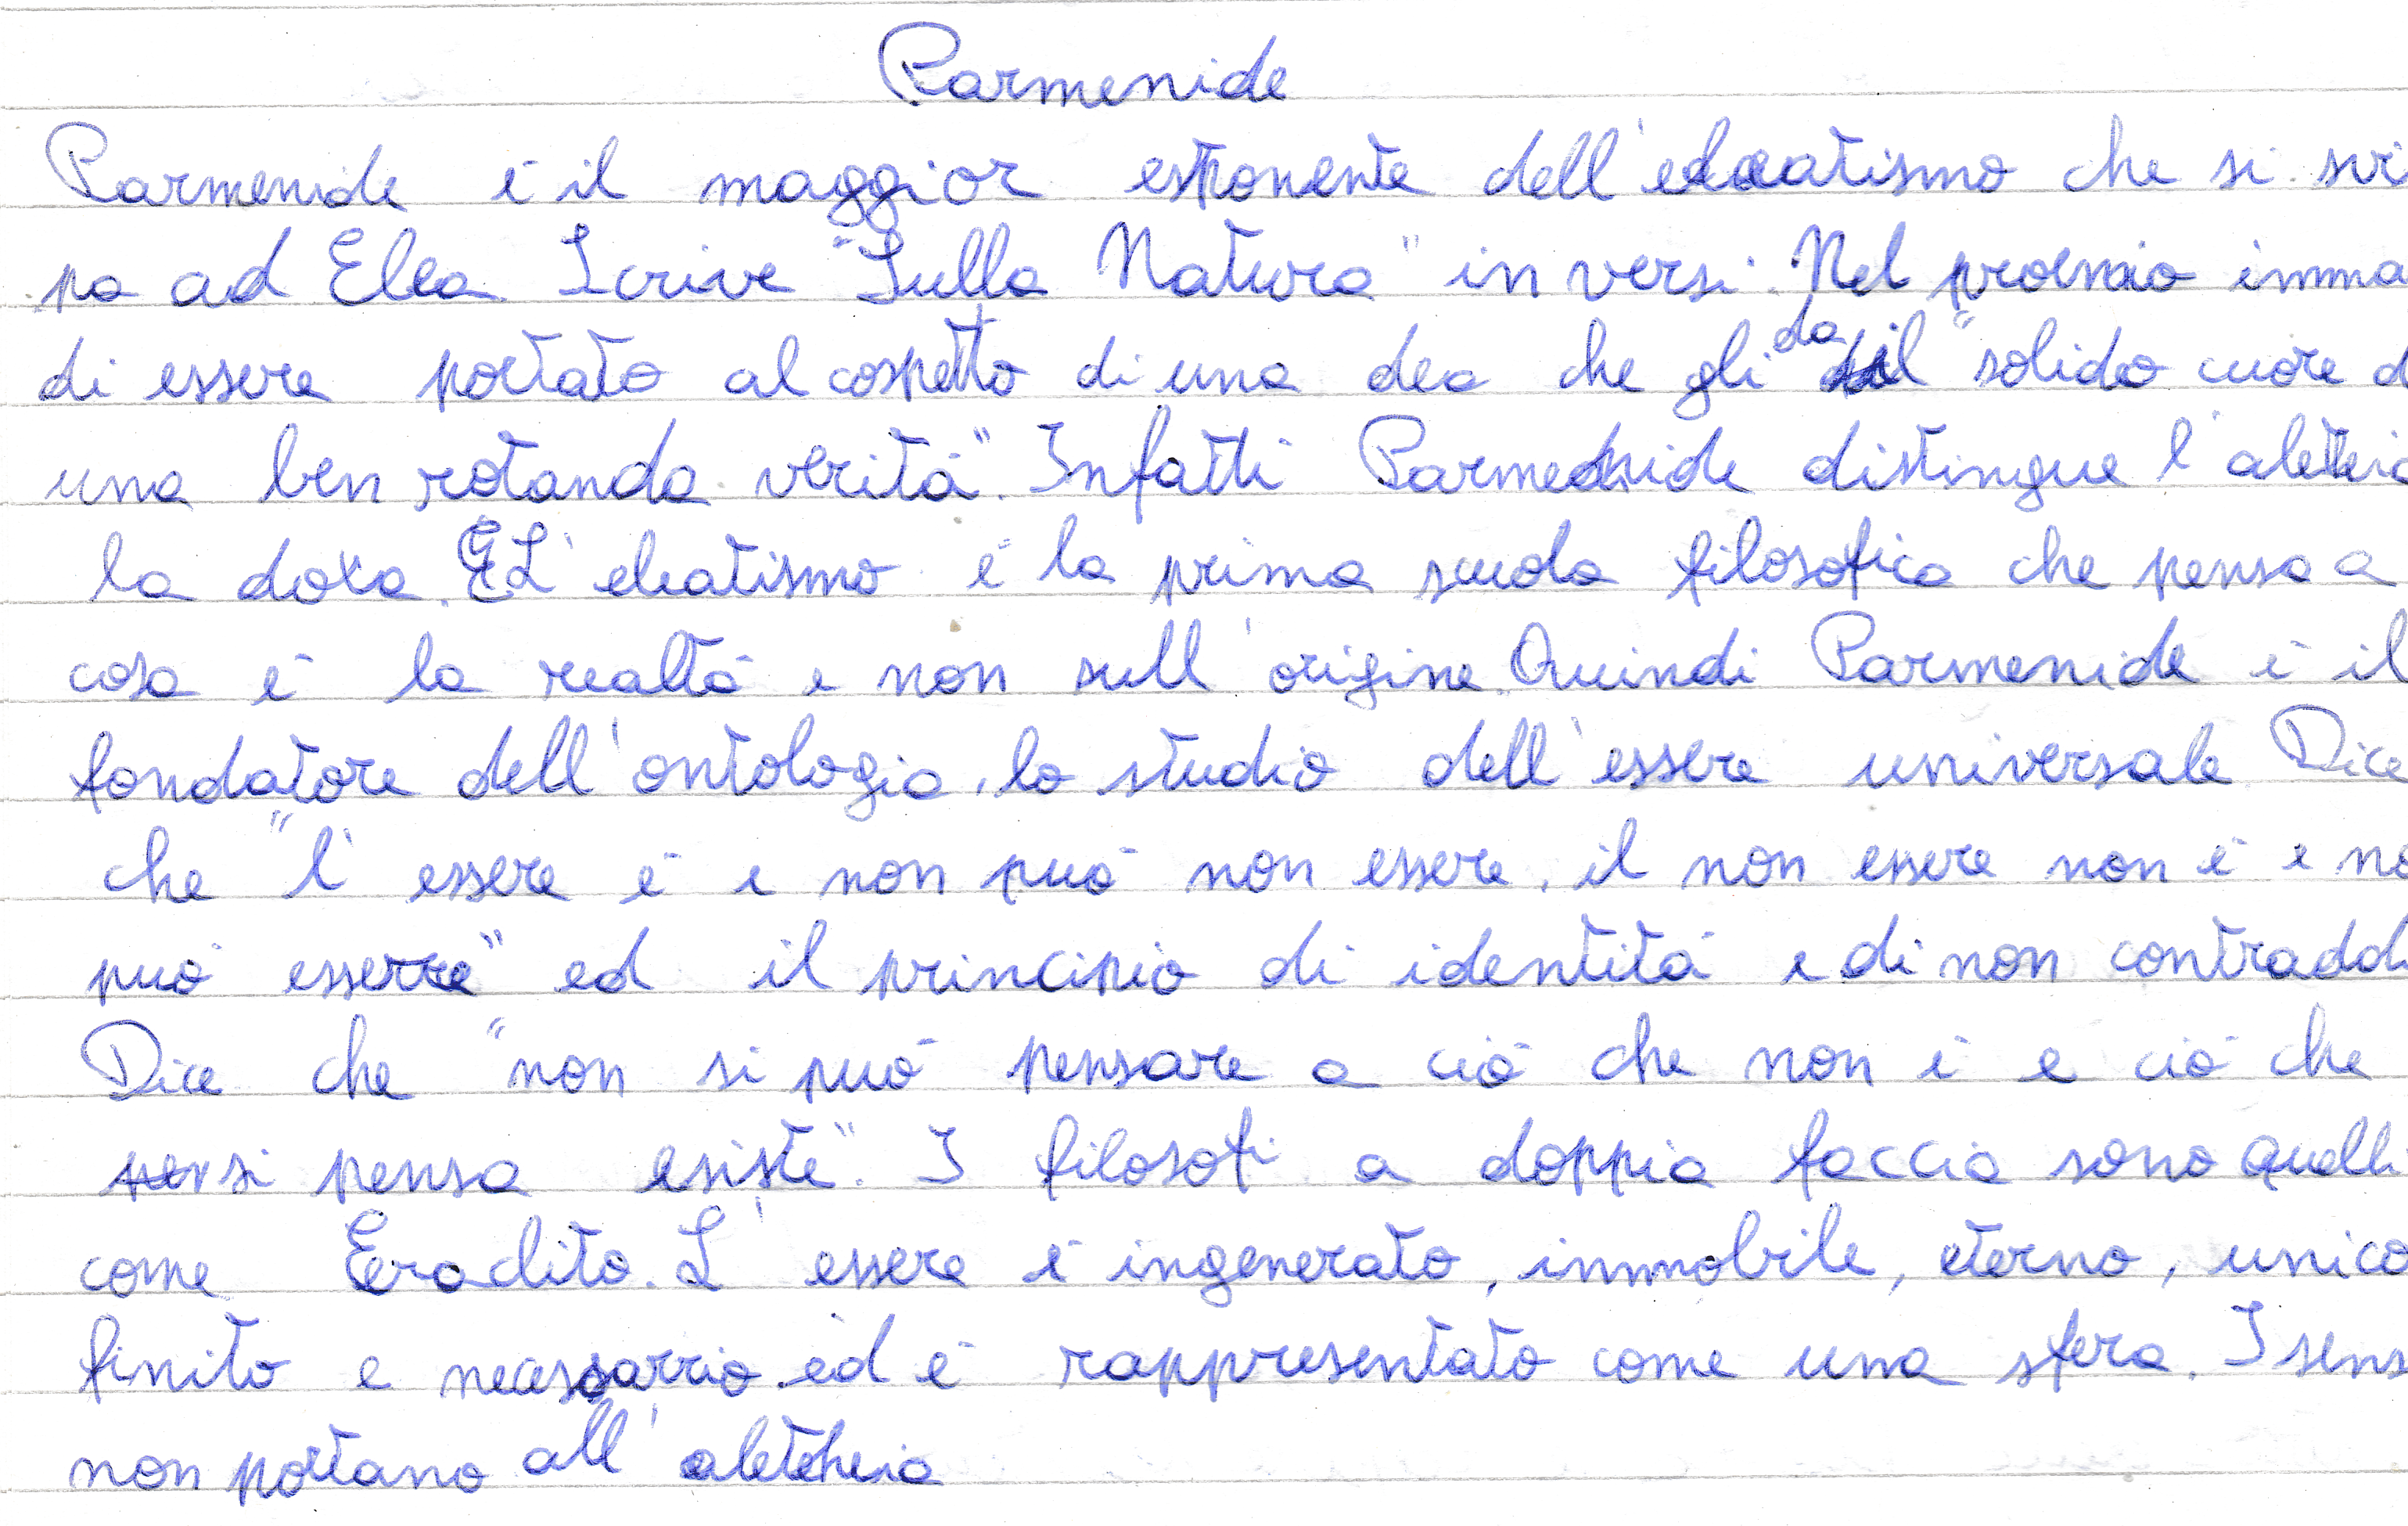 Parmenide
Parmenide è il maggior esponente dell'eleatismo che si svi
pa ad Elea. Scrive "Sulla Natura" in versi. Nel proemio imma
di essere portato al cospetto di una dea che gli da il "solido cuore d
una ben rotanda verità". Infatti Parmenide distingue l'aletheia
la doxa. L'eleatismo è la prima scuola filosofica che pensa a
cosa è la realtà e non sull'origine. Quindi Parmenide è il
fondatore dell'ontologia, lo studio dell'essere universale. Dice
che "l'essere è e non può non essere, il non essere non è e no
può essere" ed il principio di identità e di non contraddi
Dice che "non si può pensare a ciò che non è e ciò che
si pensa esiste". I filosofi a doppia faccia sono quelli
come Eraclito. L'essere è ingenerato, immobile, eterno, unico
finito e necessario ed è rappresentato come una sfera. I sens
non portano all'aletcheia